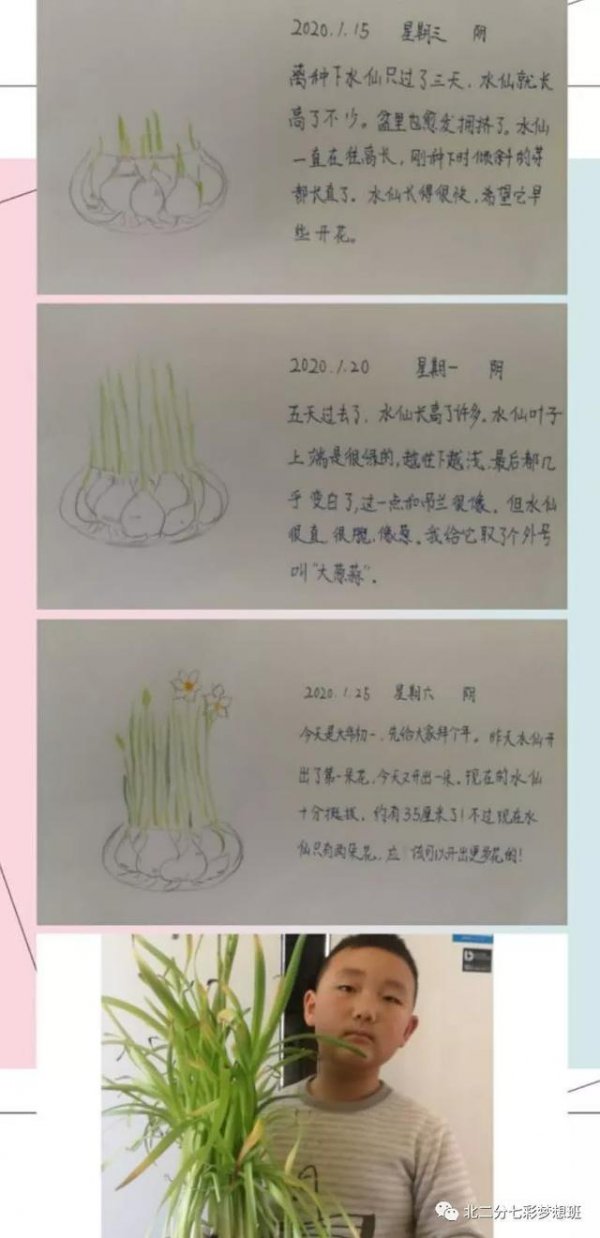 2020.1.15 星期三 阴
离种下水仙只过了三天，水仙就长
高了不少。盆里也愈发拥挤了。水仙
一直在往高长，刚种下时倾斜的芽
都长直了。水仙长得很快，希望它早
些开花。
2020.1.20 星期一 阴
五天过去了，水仙长高了许多。水仙叶子
上端是很绿的，越往下越浅，最后都几
乎变白了，这一点和吊兰很像。但水仙
很直，很脆，像葱。我给它取了个外号
叫“大葱蒜”。
2020.1.25 星期六 阴
今天是大年初一，先给大家拜个年。昨天水仙开
出了第一朵花，今天又开出一朵。现在的水仙
十分挺拔，约有35厘米了！不过现在水
仙只有两朵花，应该可以开出更多花的！
北二分七彩梦想班